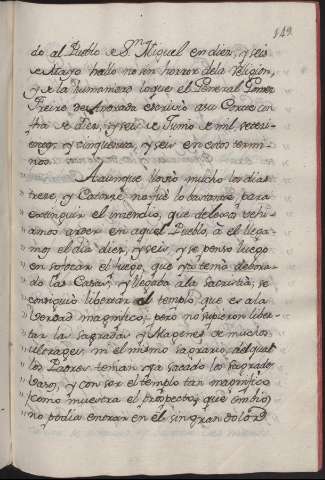 149.
do al Pueblo de Sn. Miguel en diez, y seis
de Mayo hallo no sin horror dela religion,
y de la humanidad lo que el General Gomez
Freire de Andrada escrivio a su Corte con
fha de diez, y seis de Junio de mil setezi-
entos, y cinquenta, y seis en estos termi-
nos.
Aaunque llovio mucho los dias
" treze, y Catorze no fuè lo bastante para
" extinguir el incendio, que de lexos vehi-
" amos arder en aquel Pueblo, à èl llega-
" mos el dia diez, y seis, y se penso luego
" en sofocar el fuego, que ya tenia devora-
" do las Casas, y llegaba à la sacristia; se
" consiguiò libertar el templo, que es a la
" verdad magnifico; pero no pudieron liber-
" tar las sagradas Ymagenes de muchos
" ultrages, ni el mismo sagrario, del qual
" los Padres tenian ya sacado los sagrados
" vasos, y con ser el templo tan magnifico
" (como muestra el prospecto, que embio)
" no podia entrar en èl sin gran dolor